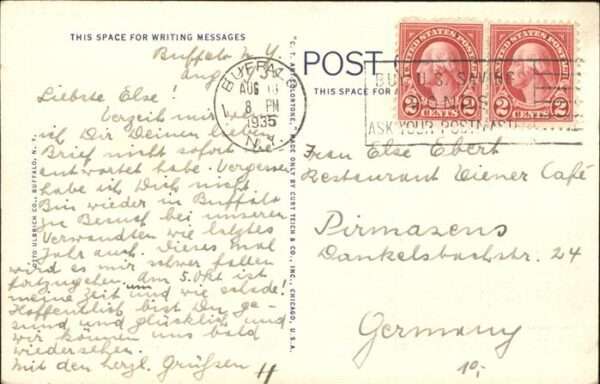 THIS SPACE FOR WRITING MESSAGES
Buffalo N.Y.
Aug
Liebste Else!
Verzeih mir
ich Dir Deinen lieben
Brief nicht sofort
entwortet habe. Vergessen
habe ich Dich nicht
Bin wieder in Buffalo
zu Besuch bei unseren
Verwandten wie letztes
Jahr auch. Dieses mal
wird es mir schwer fallen
fortzugehen. Am 5. Okt ist
meine Zeit um und wie schade!
Hoffentlich bist Du ge-
sund und glücklich und
wir können uns bald
wiedersehen.
Mit den herzl. Grüßen
OTTO ULBRICH CO., BUFFALO, N. Y.
"C. T. ART-COLORTONE" MADE ONLY BY CURT TEICH & CO., INC., CHICAGO, U.S.A.
BUFFALO
AUG
8 PM
1935
N.Y.
POST
THIS SPACE FOR
BUY U.S. SAVINGS
BONDS
ASK YOUR POSTMASTER
UNITED STATES POSTAGE
2 CENTS 2
UNITED STATES POSTAGE
2 CENTS 2
Frau Else Ebert
Restaurant Wiener Café
Pirmasens
Dankelsbachstr. 24
Germany
10,-